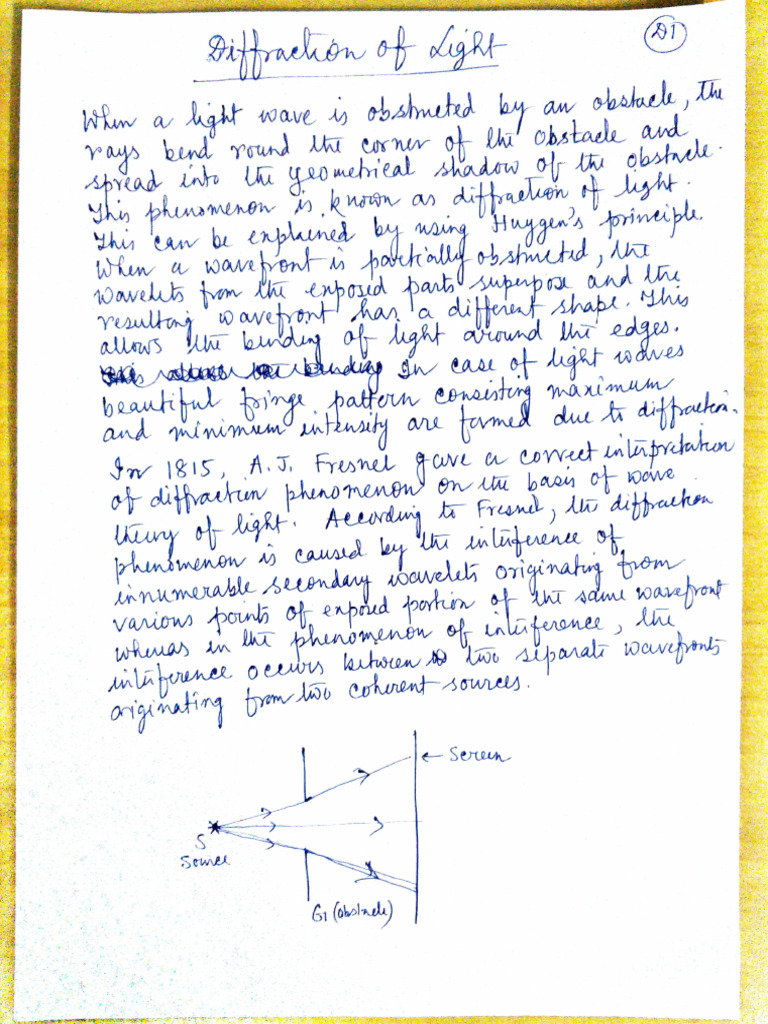 Diffraction of Light
D1
When a light wave is obstructed by an obstacle, the
rays bend round the corner of the obstacle and
spread into the geometrical shadow of the obstacle.
This phenomenon is known as diffraction of light.
This can be explained by using Huygen's principle.
When a wavefront is partially obstructed, the
wavelets from the exposed parts superpose and the
resulting wavefront has a different shape. This
allows the bending of light around the edges.
In case of light waves
beautiful fringe pattern consisting maximum
and minimum intensity are formed due to diffraction.
In 1815, A.J. Fresnel gave a correct interpretation
of diffraction phenomenon on the basis of wave
theory of light. According to Fresnel, the diffraction
phenomenon is caused by the interference of
innumerable secondary wavelets originating from
various points of exposed portion of the same wavefront
whereas in the phenomenon of interference, the
interference occurs between two separate wavefronts
originating from two coherent sources.
← Screen
S
Source
G1 (obstacle)